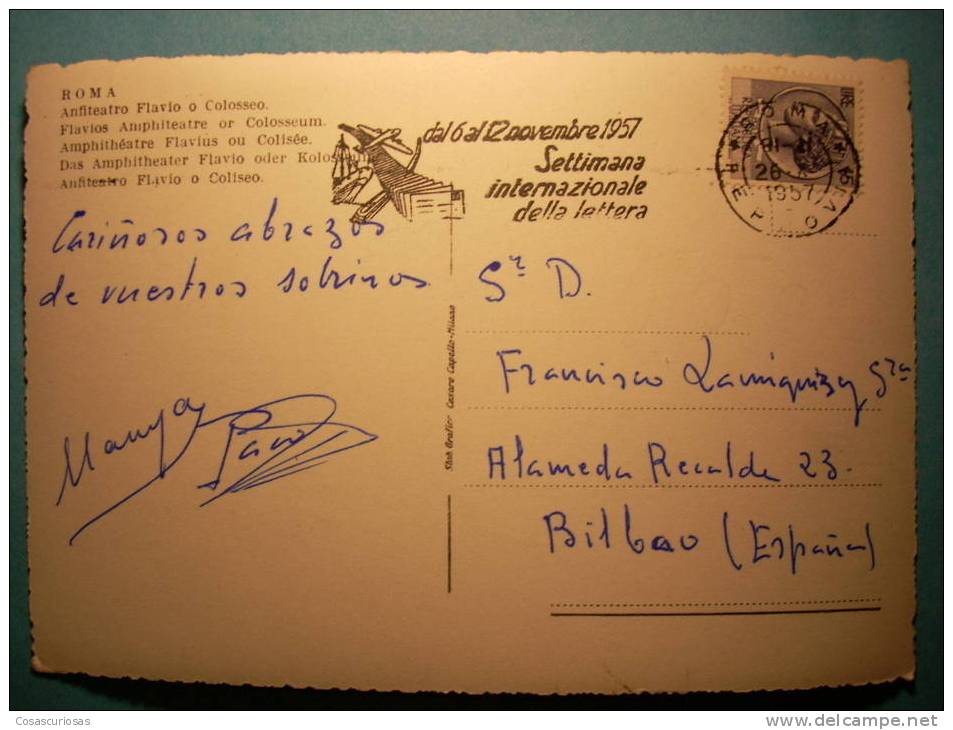 ROMA
Anfiteatro Flavio o Colosseo.
Flavios Amphiteatre or Colosseum.
Amphithéâtre Flavius ou Colisée.
Das Amphitheater Flavio oder
Anfiteatro Flavio o Coliseo.
dal 6 al 12 novembre 1957
Settimana
internazionale
della lettera
1957
Cariñosos abrazos
de vuestros sobrinos
Sr D.
Francisco Sra
Alameda Recalde 23.
Bilbao (España)
Paco
Stab. Grafico Cesare Capello-Milano
Cosascuriosas
www.delcampe.net